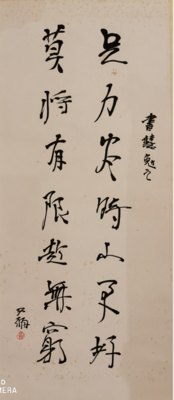 書慧勉之
足力盡時山更好
莫將有限趁無窮
MERA